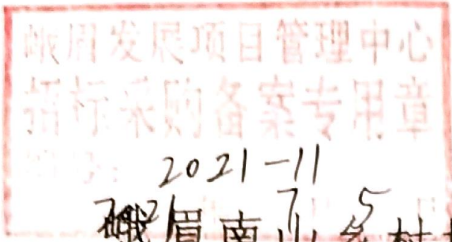 峨眉发展项目管理中心
招标采购备案专用章
2021-11
2021 7 5
峨眉南山乡村